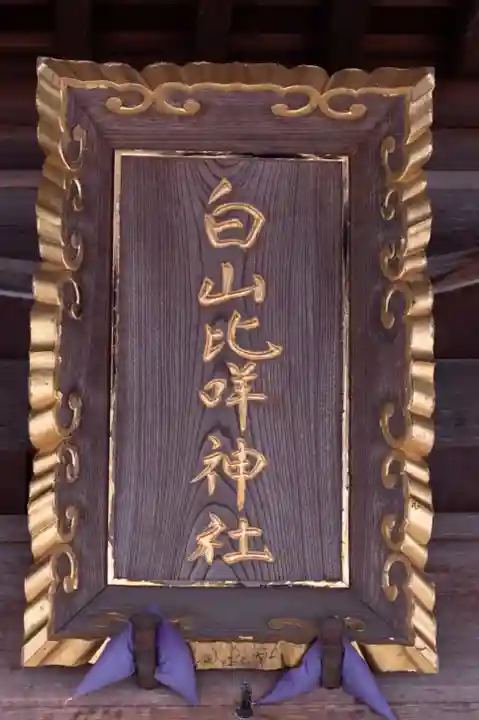 白山比咩神社